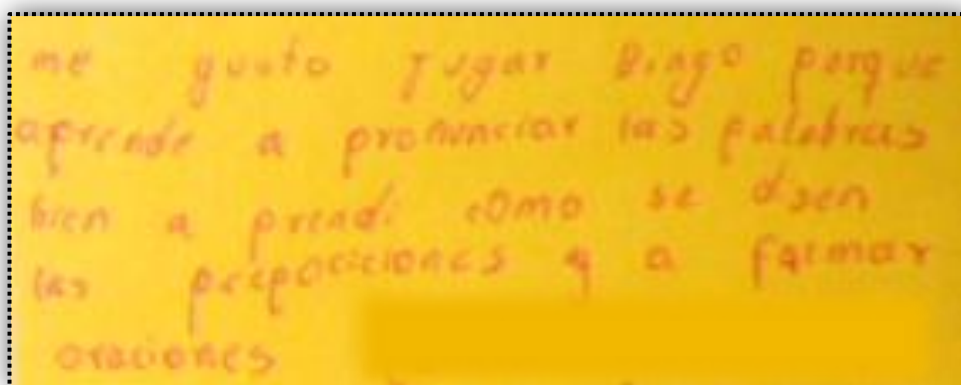 me gusto jugar Bingo porque
aprende a pronunciar las palabras
bien a prendi como se disen
las preposiciones y a formar
oraciones